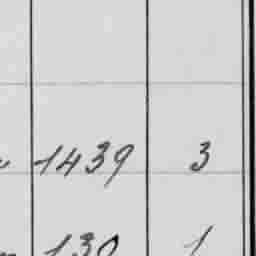 1439 3
130 1